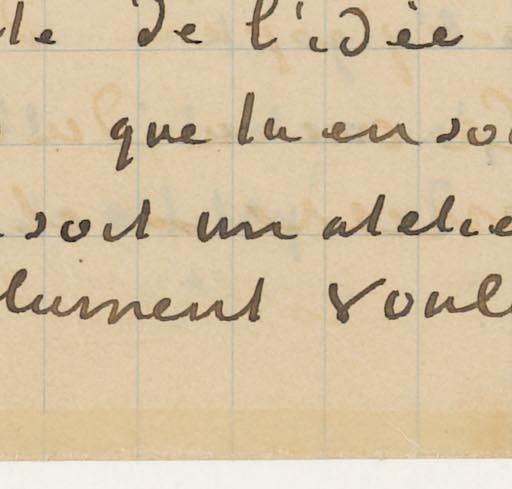 de l'idée
que tu en so
soit un atelie
lument voul